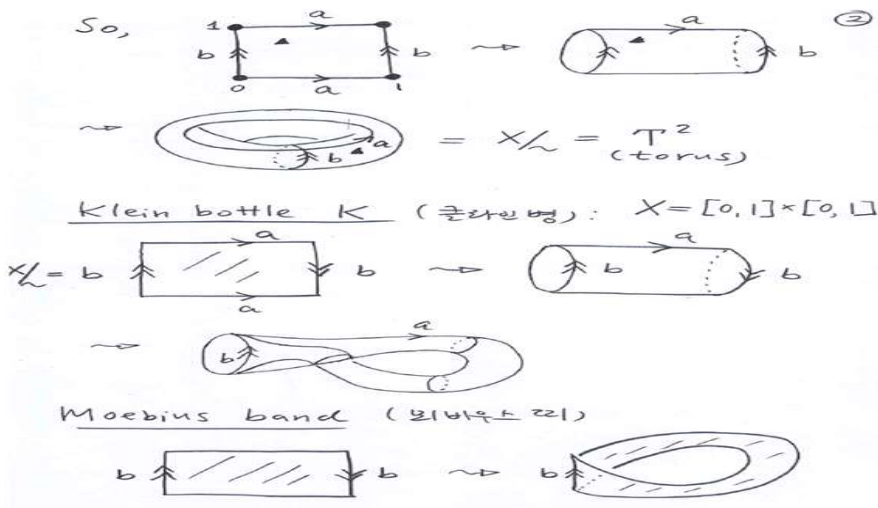 So, ②
a
1 b b
0 a 1
a
b
b a = X/~ = T²
(torus)
Klein bottle K (클라인 병): X=[0,1]×[0,1]
a a
X/~= b b b b
a
a
b
Moebius band (뫼비우스 띠)
b b b